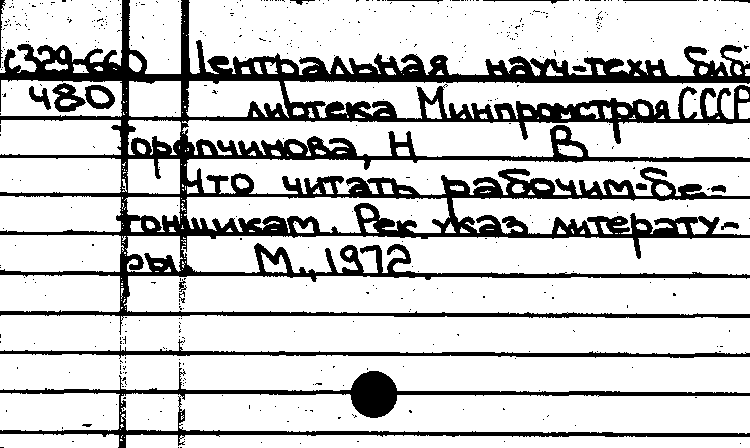 с329-660 Центральная науч-техн биб-
480 лиотека Минпромстроя СССР
Торопчинова, Н В
Что читать рабочим-бе-
тонщикам. Рек указ литерату-
ры. М., 1972.